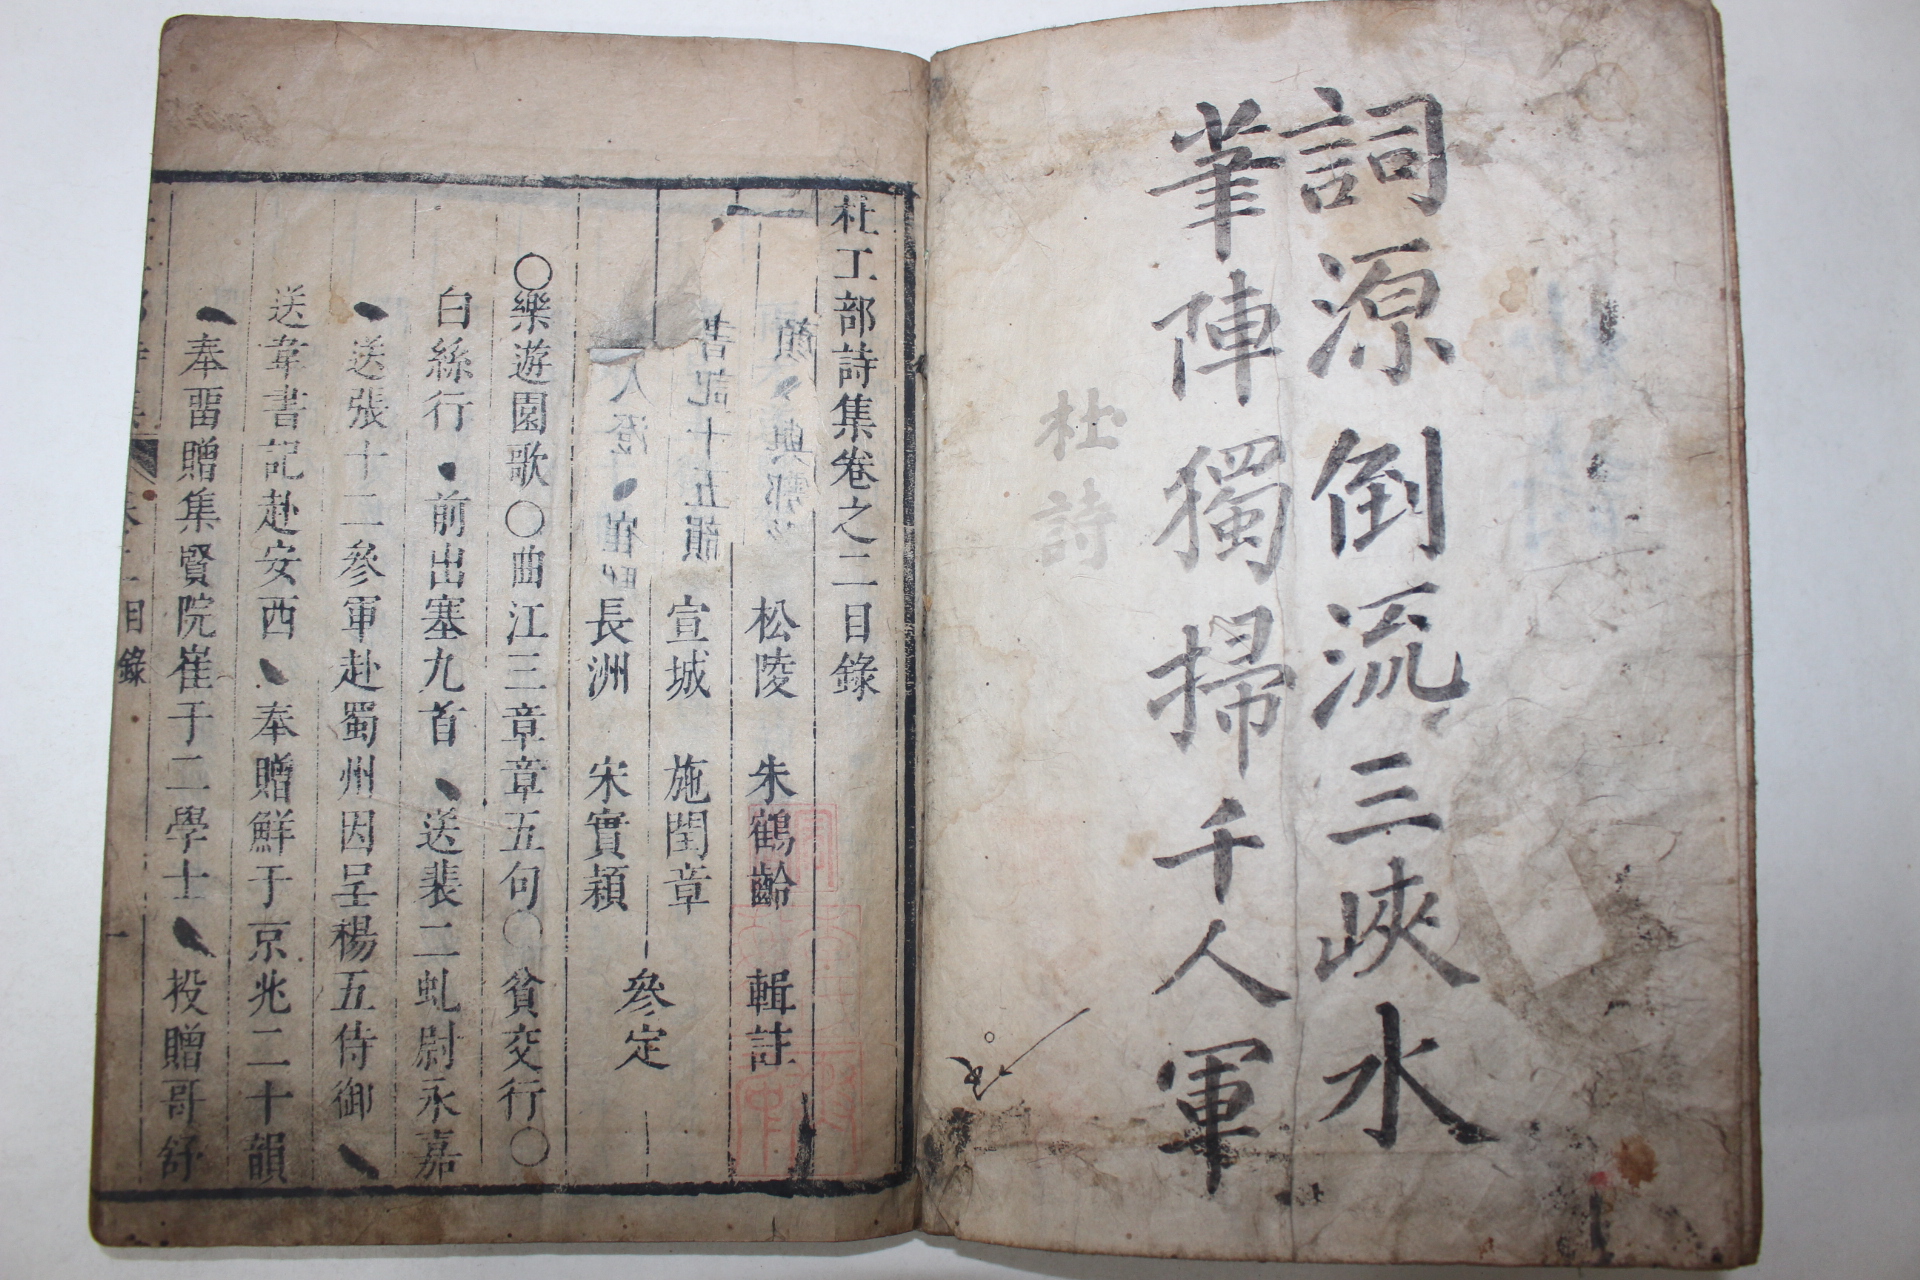 詞源倒流三峽水
筆陣獨掃千人軍
杜詩
杜工部詩集卷之二目錄
松陵 朱鶴齡 輯註
宣城 施閏章
參定
長洲 宋實穎
○樂遊園歌○曲江三章章五句○貧交行○
白絲行 前出塞九首 送裴二虬尉永嘉
送張十二參軍赴蜀州因呈楊五侍御
送韋書記赴安西 奉贈鮮于京兆二十韻
奉畱贈集賢院崔于二學士 投贈哥舒
目錄 一